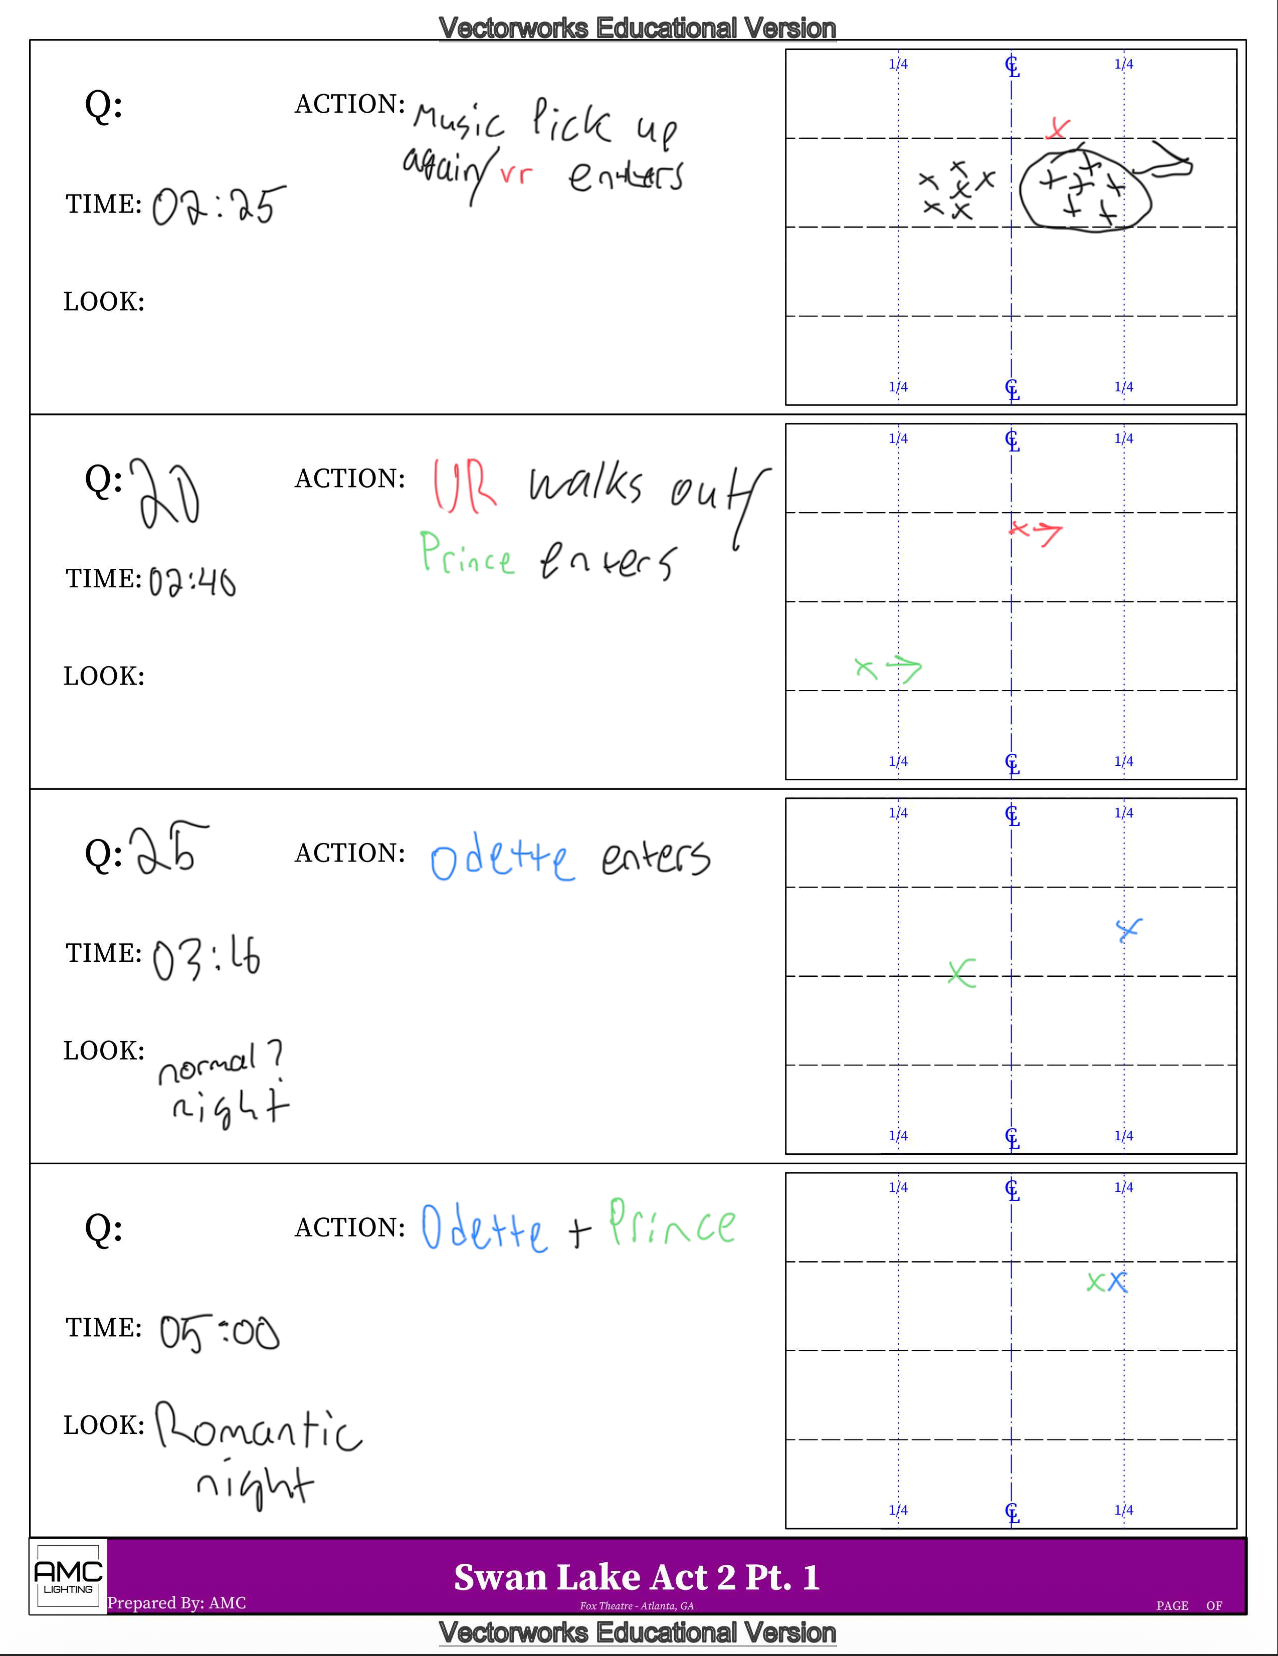 Vectorworks Educational Version
1/4 CL 1/4
Q:
ACTION: Music Pick up
again/vr enters
TIME: 02:25
LOOK:
1/4 CL 1/4
1/4 CL 1/4
Q: 20
ACTION: VR walks out/
Prince enters
TIME: 02:40
LOOK:
1/4 CL 1/4
1/4 CL 1/4
Q: 25
ACTION: Odette enters
TIME: 03:16
LOOK: normal?
night
1/4 CL 1/4
1/4 CL 1/4
Q:
ACTION: Odette + Prince
TIME: 05:00
LOOK: Romantic
night
1/4 CL 1/4
AMC
LIGHTING
Prepared By: AMC
Swan Lake Act 2 Pt. 1
Fox Theatre - Atlanta, GA
PAGE OF
Vectorworks Educational Version